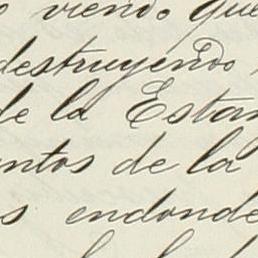 viendo que
destruyendo
de la Estan
ntos de la
s endonde